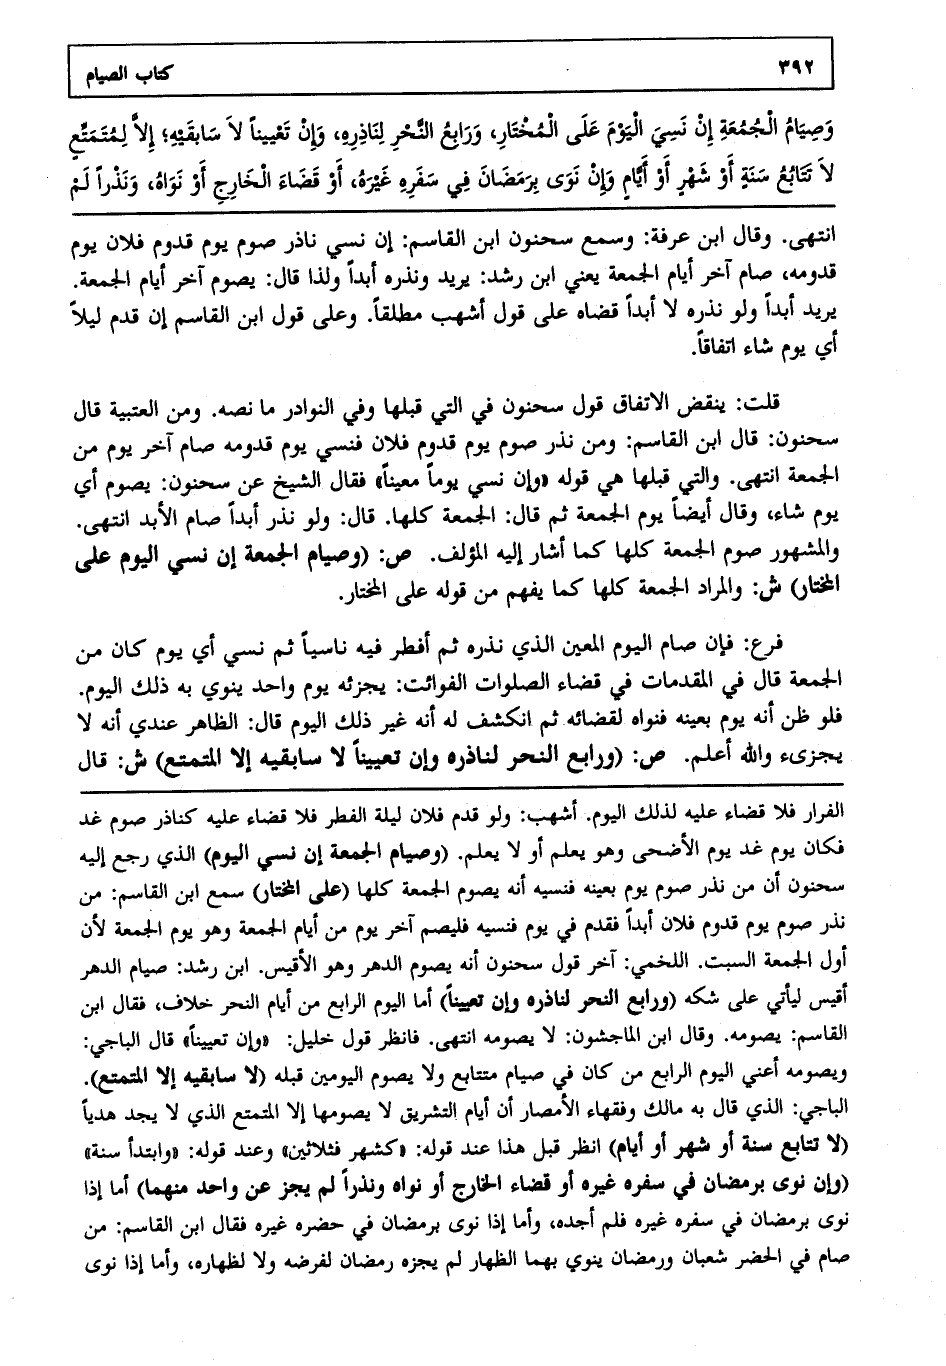 ٣٩٢
كتاب الصيام
وَصِيَامُ الْجُمُعَةِ إِنْ نَسِيَ الْيَوْمَ عَلَى الْمُخْتَارِ، وَرَابِعُ النَّحْرِ لِنَاذِرِهِ، وَإِنْ تَعْيِيناً لاَ سَابِقَيْهِ؛ إِلاَّ لِمُتَمَتِّعٍ
لاَ تَتَابُعُ سَنَةٍ أَوْ شَهْرٍ أَوْ أَيَّامٍ وَإِنْ نَوَى بِرَمَضَانَ فِي سَفَرِهِ غَيْرَهُ، أَوْ قَضَاءَ الْخَارِجِ أَوْ نَوَاهُ، وَنَذْراً لَمْ
انتهى. وقال ابن عرفة: وسمع سحنون ابن القاسم: إن نسي ناذر صوم يوم قدوم فلان يوم
قدومه، صام آخر أيام الجمعة يعني ابن رشد: يريد ونذره أبداً ولذا قال: يصوم آخر أيام الجمعة.
يريد أبداً ولو نذره لا أبداً قضاه على قول أشهب مطلقاً. وعلى قول ابن القاسم إن قدم ليلاً
أي يوم شاء اتفاقاً.
قلت: ينقض الاتفاق قول سحنون في التي قبلها وفي النوادر ما نصه. ومن العتبية قال
سحنون: قال ابن القاسم: ومن نذر صوم يوم قدوم فلان فنسي يوم قدومه صام آخر يوم من
الجمعة انتهى. والتي قبلها هي قوله «وإن نسي يوماً معيناً» فقال الشيخ عن سحنون: يصوم أي
يوم شاء، وقال أيضاً يوم الجمعة ثم قال: الجمعة كلها. قال: ولو نذر أبداً صام الأبد انتهى.
والمشهور صوم الجمعة كلها كما أشار إليه المؤلف. ص: (وصيام الجمعة إن نسي اليوم على
المختار) ش: والمراد الجمعة كلها كما يفهم من قوله على المختار.
فرع: فإن صام اليوم المعين الذي نذره ثم أفطر فيه ناسياً ثم نسي أي يوم كان من
الجمعة قال في المقدمات في قضاء الصلوات الفوائت: يجزئه يوم واحد ينوي به ذلك اليوم.
فلو ظن أنه يوم بعينه فنواه لقضائه ثم انكشف له أنه غير ذلك اليوم قال: الظاهر عندي أنه لا
يجزىء والله أعلم. ص: (ورابع النحر لناذره وإن تعييناً لا سابقيه إلا المتمتع) ش: قال
الفرار فلا قضاء عليه لذلك اليوم. أشهب: ولو قدم فلان ليلة الفطر فلا قضاء عليه كناذر صوم غد
فكان يوم غد يوم الأضحى وهو يعلم أو لا يعلم. (وصيام الجمعة إن نسي اليوم) الذي رجع إليه
سحنون أن من نذر صوم يوم بعينه فنسيه أنه يصوم الجمعة كلها (على المختار) سمع ابن القاسم: من
نذر صوم يوم قدوم فلان أبداً فقدم في يوم فنسيه فليصم آخر يوم من أيام الجمعة وهو يوم الجمعة لأن
أول الجمعة السبت. اللخمي: آخر قول سحنون أنه يصوم الدهر وهو الأقيس. ابن رشد: صيام الدهر
أقيس ليأتي على شكه (ورابع النحر لناذره وإن تعييناً) أما اليوم الرابع من أيام النحر خلاف، فقال ابن
القاسم: يصومه. وقال ابن الماجشون: لا يصومه انتهى. فانظر قول خليل: «وإن تعييناً» قال الباجي:
ويصومه أعني اليوم الرابع من كان في صيام متتابع ولا يصوم اليومين قبله (لا سابقيه إلا المتمتع).
الباجي: الذي قال به مالك وفقهاء الأمصار أن أيام التشريق لا يصومها إلا المتمتع الذي لا يجد هدياً
(لا تتابع سنة أو شهر أو أيام) انظر قبل هذا عند قوله: «كشهر فثلاثين» وعند قوله: «وابتدأ سنة»
(وإن نوى برمضان في سفره غيره أو قضاء الخارج أو نواه ونذراً لم يجز عن واحد منهما) أما إذا
نوى برمضان في سفره غيره فلم أجده، وأما إذا نوى برمضان في حضره غيره فقال ابن القاسم: من
صام في الحضر شعبان ورمضان ينوي بهما الظهار لم يجزه رمضان لفرضه ولا لظهاره، وأما إذا نوى